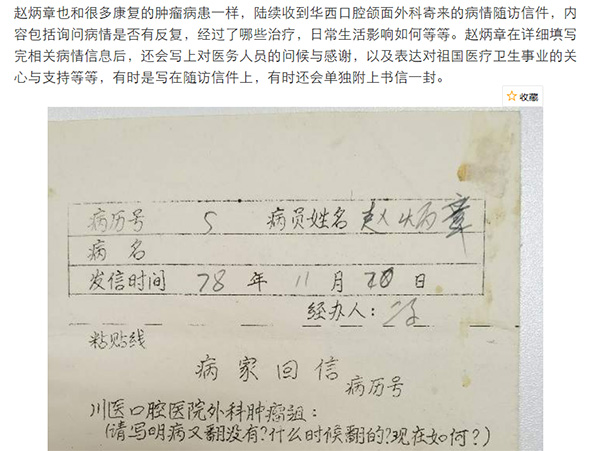 赵炳章也和很多康复的肿瘤病患一样，陆续收到华西口腔颌面外科寄来的病情随访信件，内
容包括询问病情是否有反复，经过了哪些治疗，日常生活影响如何等等。赵炳章在详细填写
完相关病情信息后，还会写上对医务人员的问候与感谢，以及表达对祖国医疗卫生事业的关
心与支持等等，有时是写在随访信件上，有时还会单独附上书信一封。
收藏
病历号 5 病员姓名 赵炳章
病 名
发信时间 78 年 11 月 20 日
经办人：
粘贴线
病家回信
病历号
川医口腔医院外科肿瘤组：
(请写明病又翻没有?什么时候翻的?现在如何?)